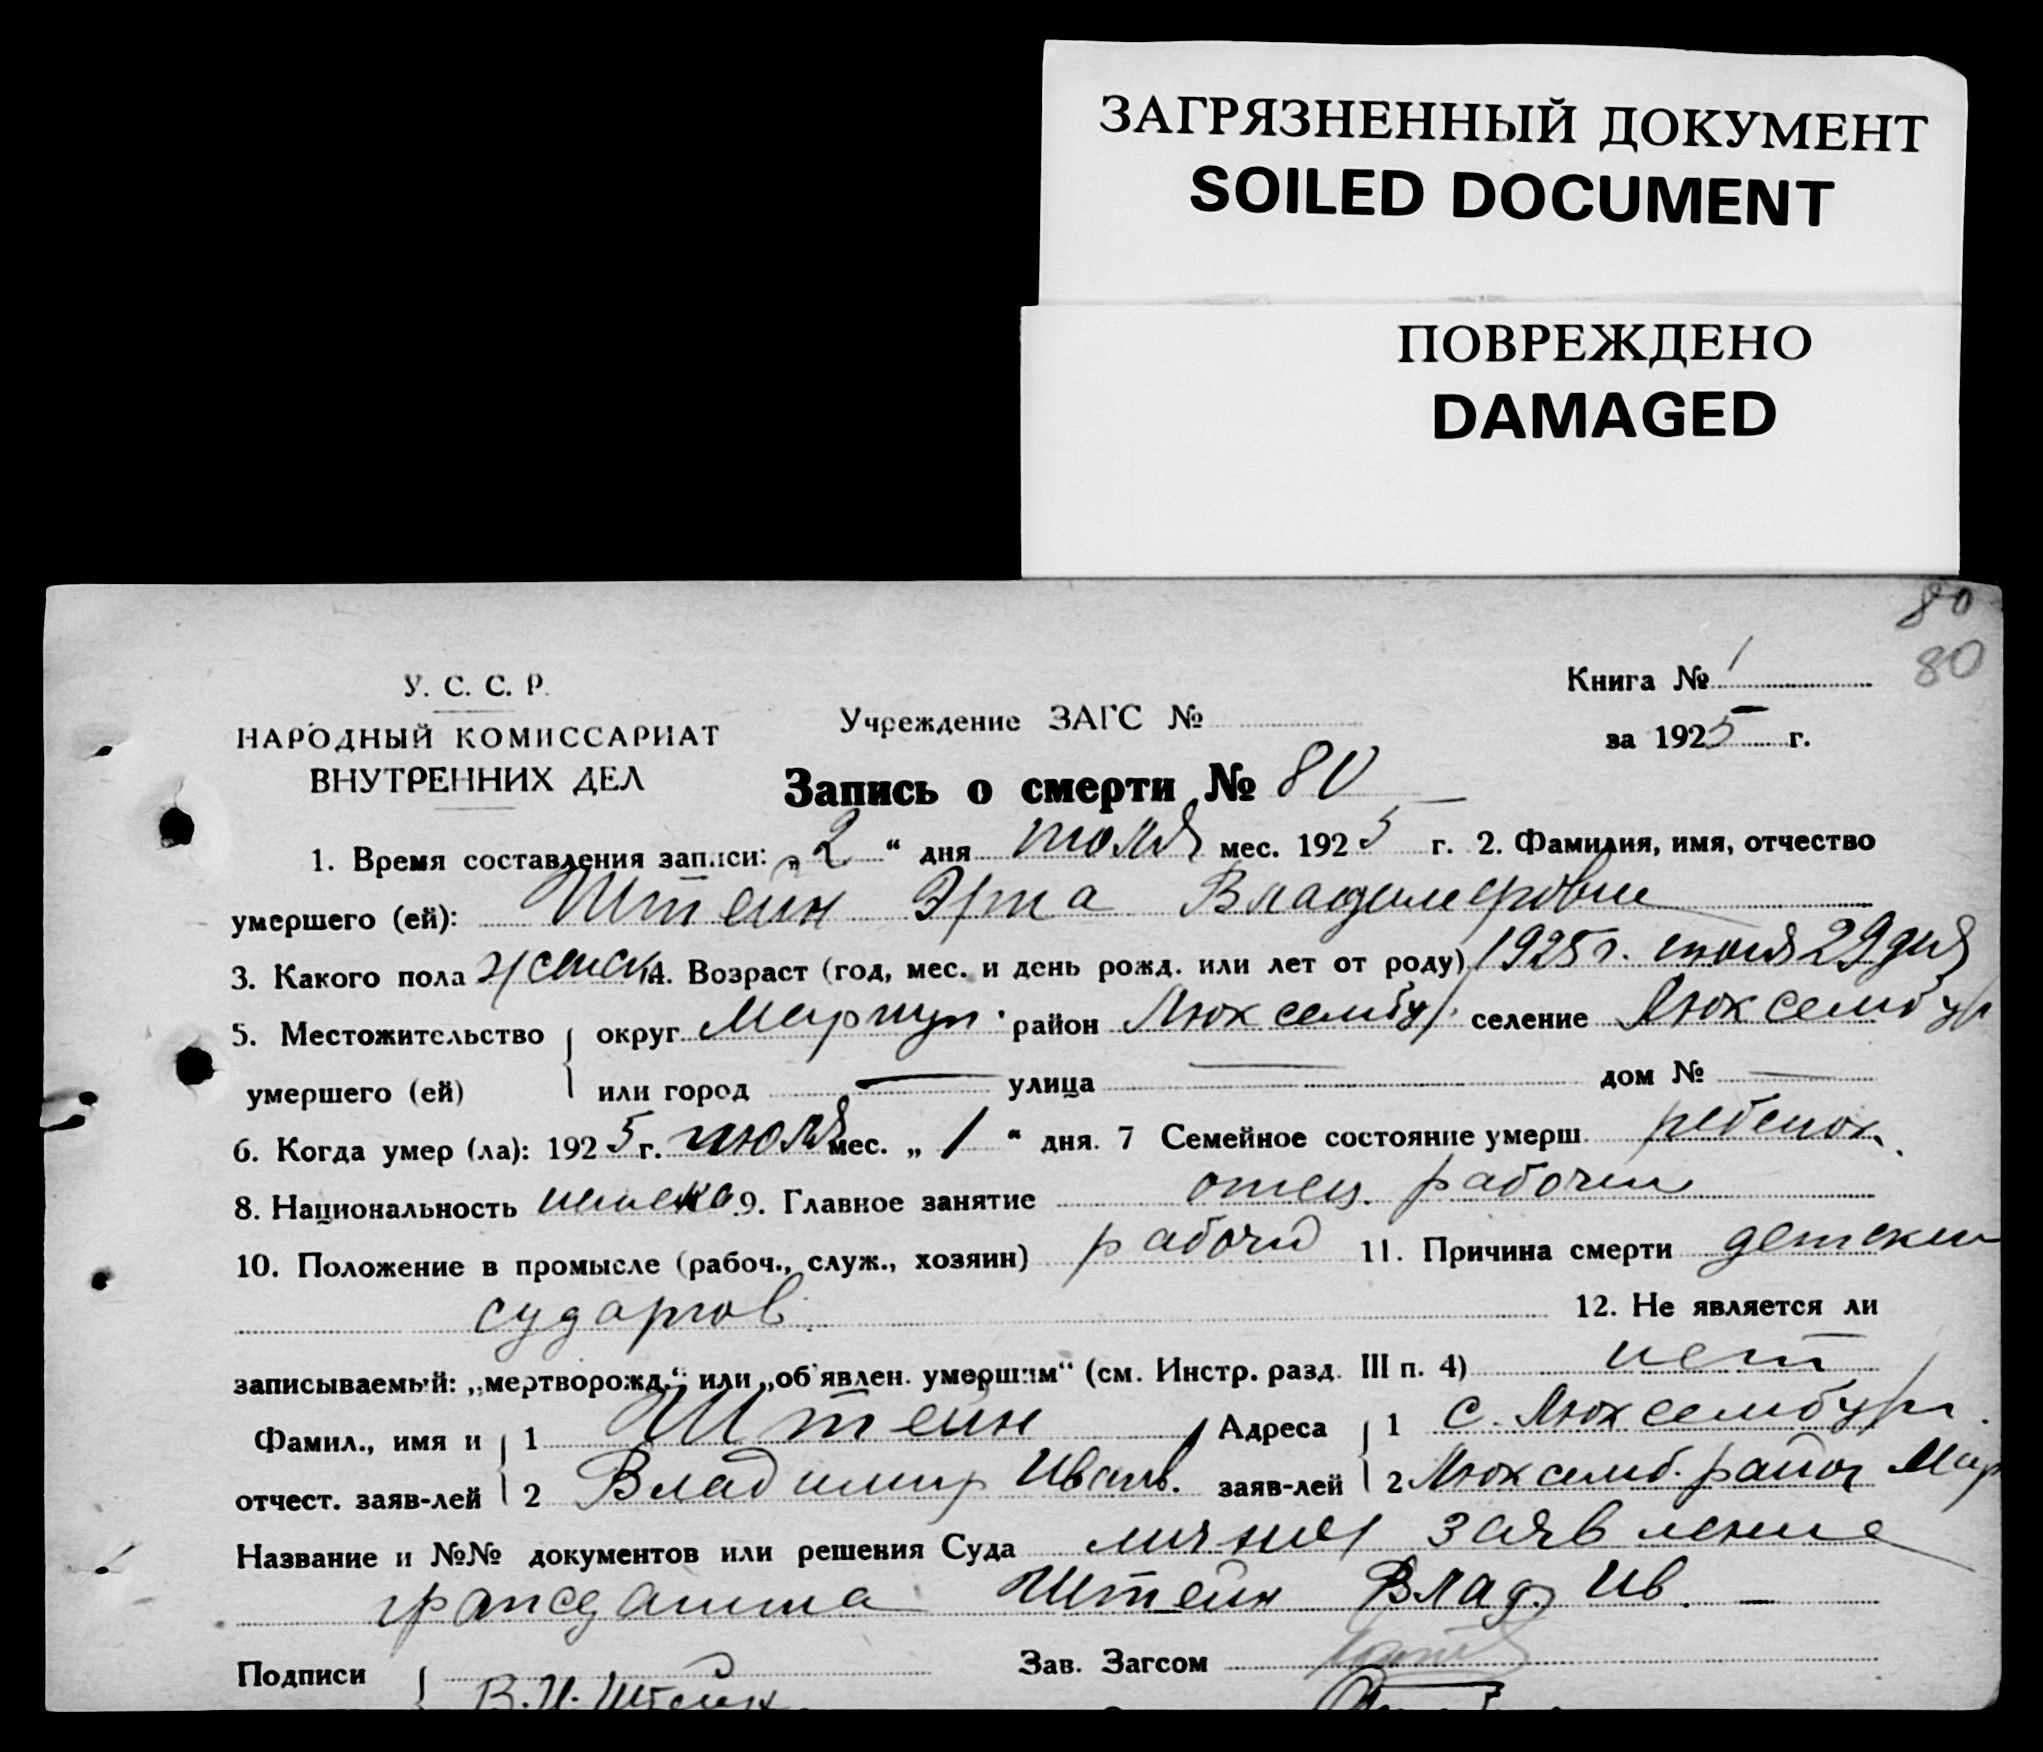 ЗАГРЯЗНЕННЫЙ ДОКУМЕНТ
SOILED DOCUMENT
ПОВРЕЖДЕНО
DAMAGED
80
80
У. С. С. Р.
НАРОДНЫЙ КОМИССАРИАТ
ВНУТРЕННИХ ДЕЛ
Учреждение ЗАГС №
Книга № 1
за 1925 г.
Запись о смерти № 80
1. Время составления записи: „2“ дня июля мес. 1925 г. 2. Фамилия, имя, отчество
умершего (ей): Штейн Эрна Владимеровне
3. Какого пола женск. 4. Возраст (год, мес. и день рожд. или лет от роду) 1925 г. июня 29 дня
5. Местожительство округ Мариуп. район Люксембур. селение Люксембур
умершего (ей) или город — улица — дом № —
6. Когда умер (ла): 1925 г. июля мес. „1“ дня. 7 Семейное состояние умерш. ребенок
8. Национальность немка 9. Главное занятие отец рабочий
10. Положение в промысле (рабоч., служ., хозяин) рабочий 11. Причина смерти детский
12. Не является ли
записываемый: „мертворожд.“ или „об'явлен. умершим“ (см. Инстр. разд. III п. 4) нет
Фамил., имя и 1 Штейн Адреса 1 с. Люксембург.
отчест. заяв-лей 2 Владимир Иванов. заяв-лей 2 Люксемб. район Мар
Название и №№ документов или решения Суда личное заявление
гражданина Штейн Влад. Ив. —
Подписи В. И. Штейн Зав. Загсом